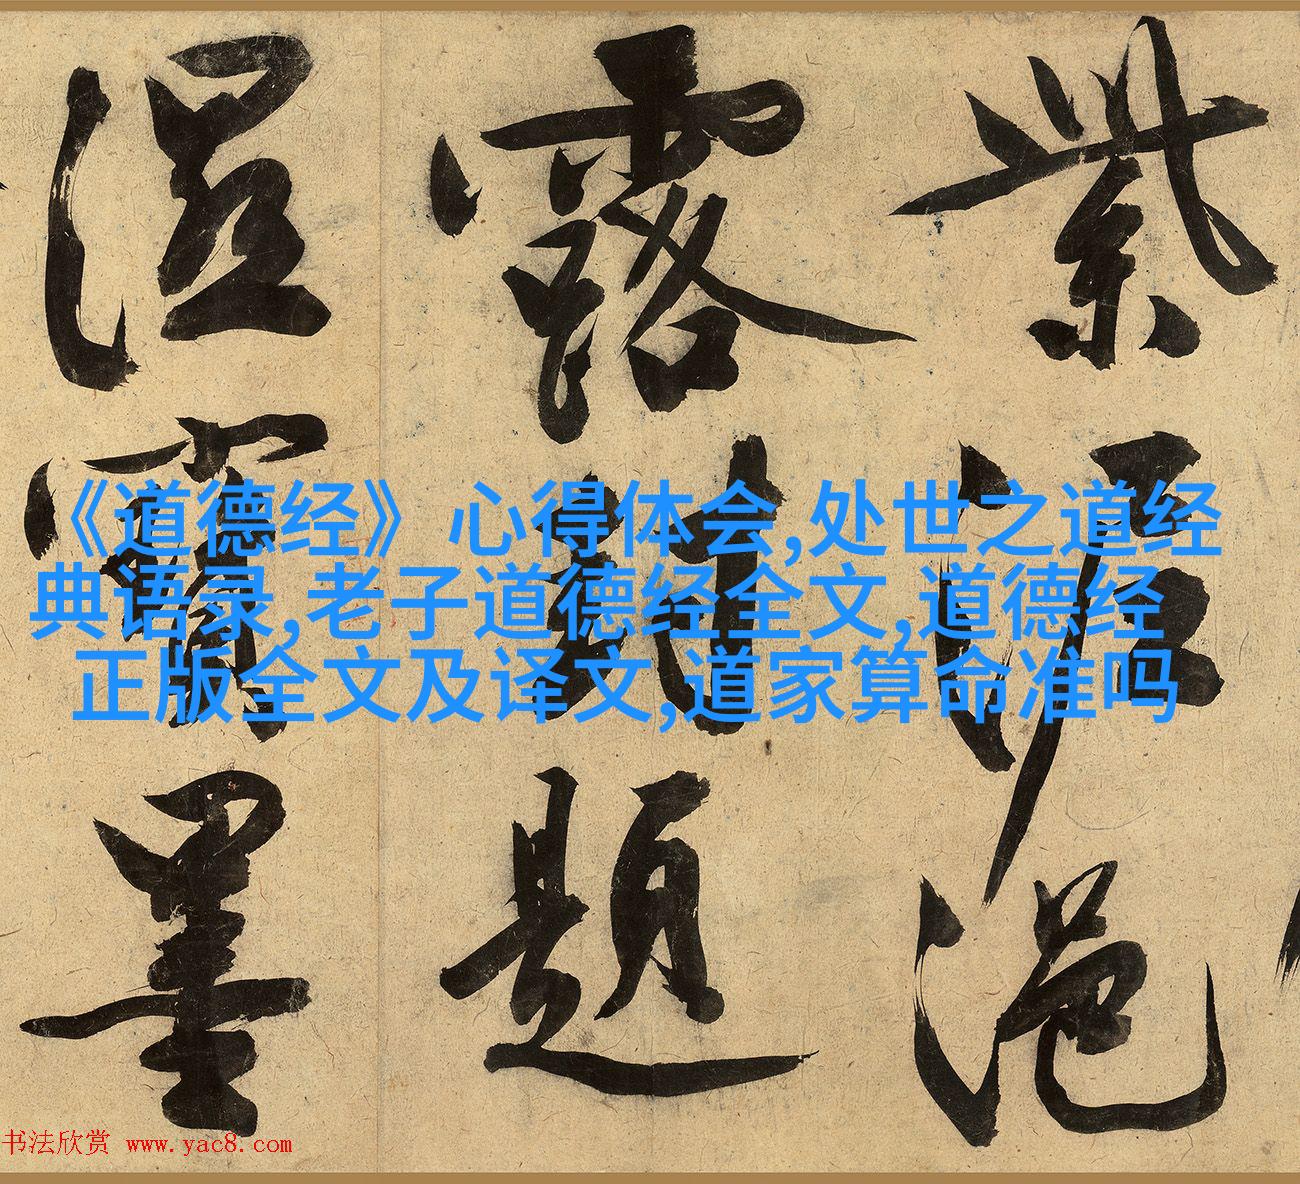 紫泥浥
露封題
濕寶墨
《道德经》心得体会,处世之道经
典语录,老子道德经全文,道德经
正版全文及译文,道家算命准吗
书法欣赏 www.yac8.com